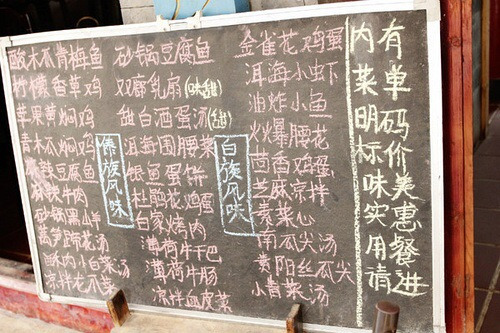 有单码价美惠餐进
内菜明标味实用请
金雀花鸡蛋
洱海小虾
油炸小鱼
火爆腰花
茴香鸡蛋
芝麻凉拌
素菜心
南瓜尖汤
贵阳丝瓜尖
小青菜汤
白族风味
砂锅豆腐鱼
双廊乳扇(味甜)
甜白酒蛋汤(甜)
洱海围腰菜
银鱼蛋饼
杜鹃花鸡蛋
白家烤肉
薄荷牛干巴
薄荷牛肠
凉拌血皮菜
傣族风味
酸木瓜青梅鱼
柠檬香草鸡
苹果黄焖鸡
青木瓜焖鸡
麻辣豆腐鱼
麻辣牛肉
砂锅黑山羊
莴笋蹄花汤
酥肉小白菜汤
凉拌龙爪菜